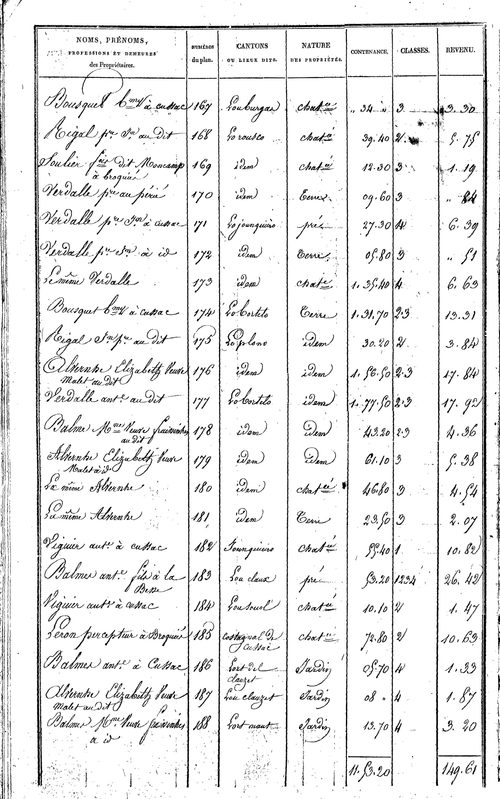 NOMS, PRÉNOMS, PROFESSIONS ET DEMEURES des Propriétaires. NUMÉROS du plan. CANTONS OU LIEUX DITS. NATURE DES PROPRIÉTÉS. CONTENANCE. CLASSES. REVENU.
Bousquet à Cussac 167 Louburgas chat 34 " 3 3.30
Rigal au dit 168 Lorousco chat 39.40 2 5.75
Soulier dit Moncamp à Broquiés 169 idem chat 12.30 3 1.19
Verdalle au périé 170 idem Terre 09.60 3 " 84
Verdalle à Cussac 171 pré 27.30 4 6.39
Verdalle à id 172 idem Terre 05.80 3 " 51
Le même Verdalle 173 idem chat 1.35.40 4 6.63
Bousquet à Cussac 174 Lo Cortilo Terre 1.31.70 2.3 13.31
Rigal au dit 175 Lo plono idem 30.20 2 3.84
Alternhe Elizabeth Veuve Malet au dit 176 idem idem 1.56.50 2.3 17.84
Verdalle ant. au dit 177 Lo Cortilo idem 1.77.50 2.3 17.92
Balme Veuve au dit 178 idem idem 43.20 2.3 4.36
Alternhe Elizabeth Veuve Malet à id 179 idem idem 61.10 3 5.38
La même Alternhe 180 idem chat 46.80 3 4.54
La même Alternhe 181 idem Terre 23.50 3 2.07
Viguier ant. à Cussac 182 chat 55.40 1 10.82
Balmes ant. fils à la Besse 183 Lou claux pré 53.20 1234 26.42
Viguier ant. à Cussac 184 chat 10.10 2 1.47
Leron percepteur à Broquiés 185 castagnal de Cussac chat 72.80 2 10.63
Balmes ant. à Cussac 186 Lort del clauzet Jardin 05.70 4 1.33
Alternhe Elizabeth Veuve Malet au dit 187 Lou clauzet Jardin 08 " 4 1.87
Balme Veuve à id 188 Lort naut Jardin 13.70 4 3.20
11.53.20 149.61